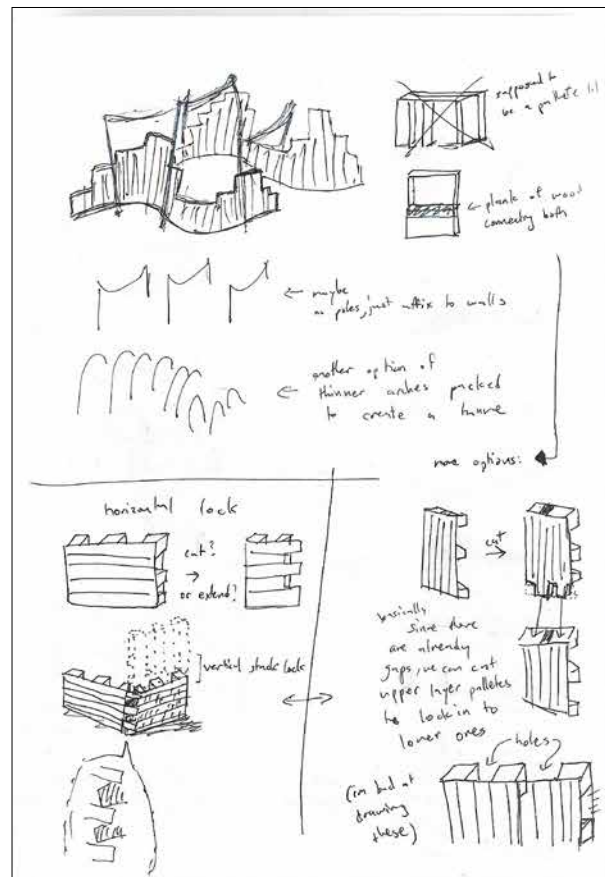 supposed to
be a pallete lol
← plank of wood
connecting both
← maybe
no poles, just affix to walls
← another option of
thinner arches packed
to create a tunne
more options:
horizontal lock
cut?
→
or extend?
vertical stack lock
cut
→
basically
since there
are already
gaps, we can cut
upper layer palletes
to lock in to
lower ones
holes
(im bad at
drawing
these)